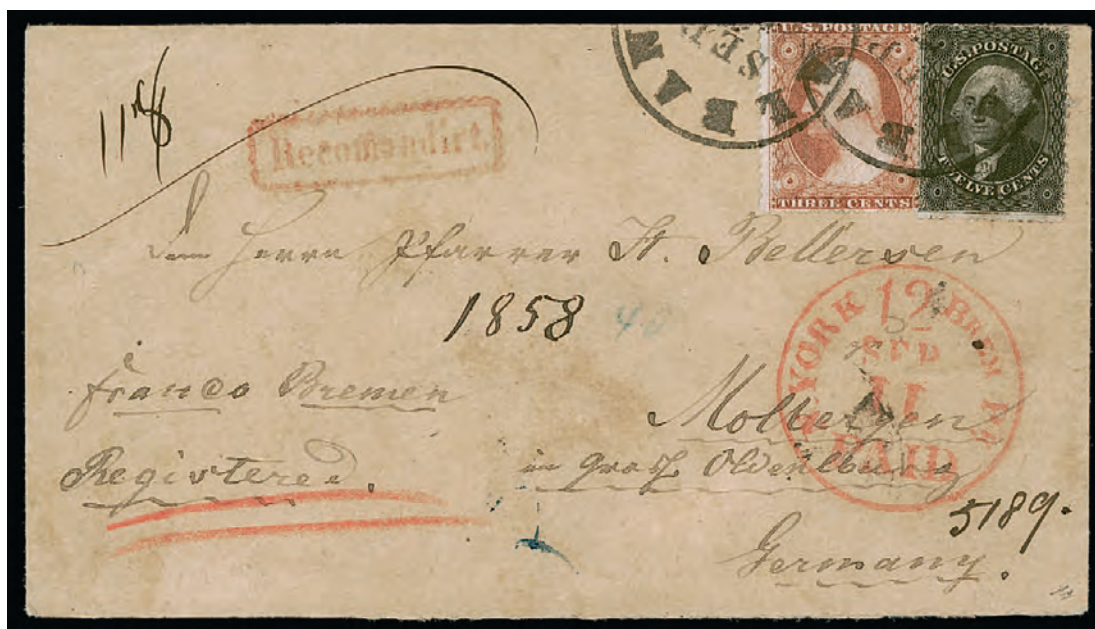 U.S. POSTAGE
THREE CENTS
U.S. POSTAGE
TWELVE CENTS
1198
Recomandirt.
Dem Herrn Pfarrer H. Bellersen
1858 40
N. YORK 12 BREM. PK
SEP
11
PAID
franco Bremen
Molbergen
Registered.
in Grosh Oldenburg
5189.
Germany.